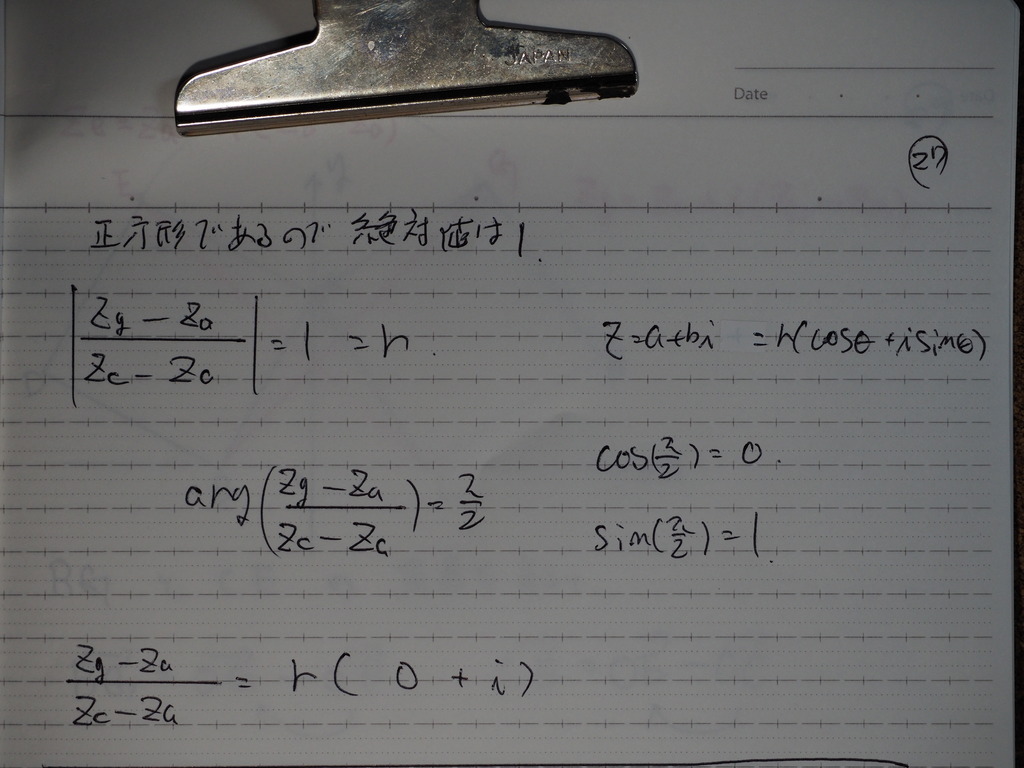 JAPAN
Date
27
正方形であるので 絶対値は1.
|(Zg − Za)/(Zc − Za)| = 1 = r.
z = a+bi = r(cosθ + i sinθ)
cos(π/2) = 0.
arg((Zg − Za)/(Zc − Za)) = π/2
sin(π/2) = 1.
(Zg − Za)/(Zc − Za) = r( 0 + i )